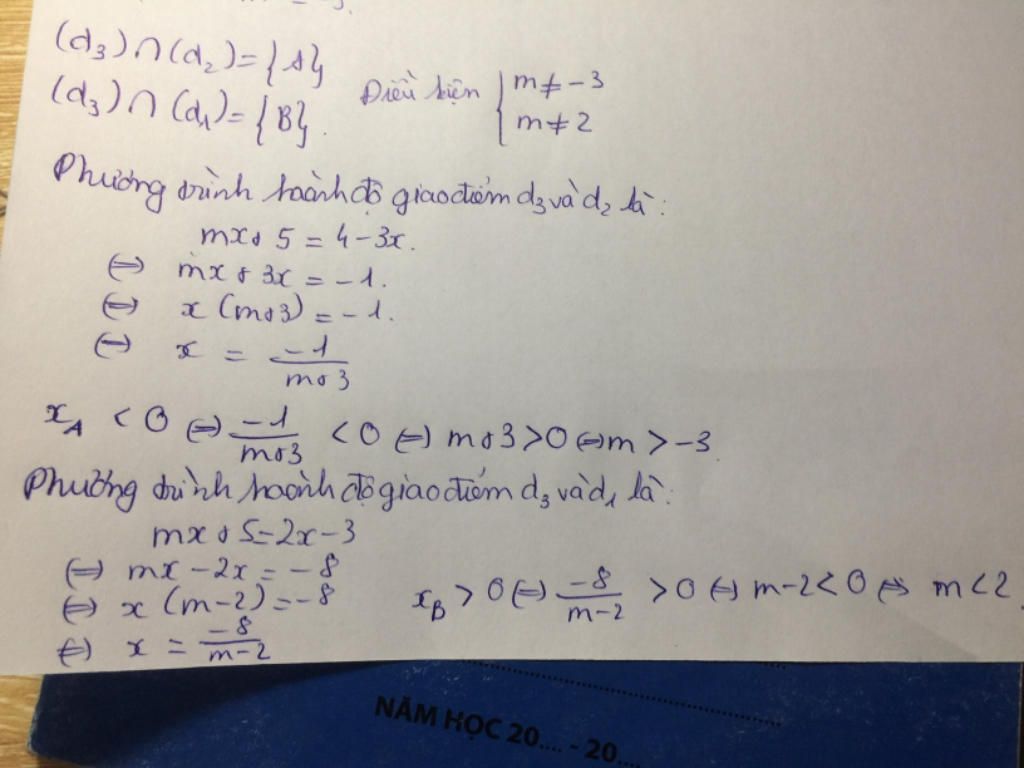 (d₃)∩(d₂)={A}
(d₃)∩(d₁)={B}. Điều kiện { m≠-3
m≠2
Phương trình hoành độ giao điểm d₃ và d₂ là:
mx+5=4-3x.
⇔ mx+3x=-1.
⇔ x(m+3)=-1.
⇔ x = -1/(m+3)
x_A <0 ⇔ -1/(m+3) <0 ⇔ m+3>0 ⇔ m>-3
Phương trình hoành độ giao điểm d₃ và d₁ là:
mx+5=2x-3
⇔ mx-2x=-8
⇔ x(m-2)=-8 x_B >0 ⇔ -8/(m-2) >0 ⇔ m-2<0 ⇔ m<2.
⇔ x = -8/(m-2)
NĂM HỌC 20.... - 20....